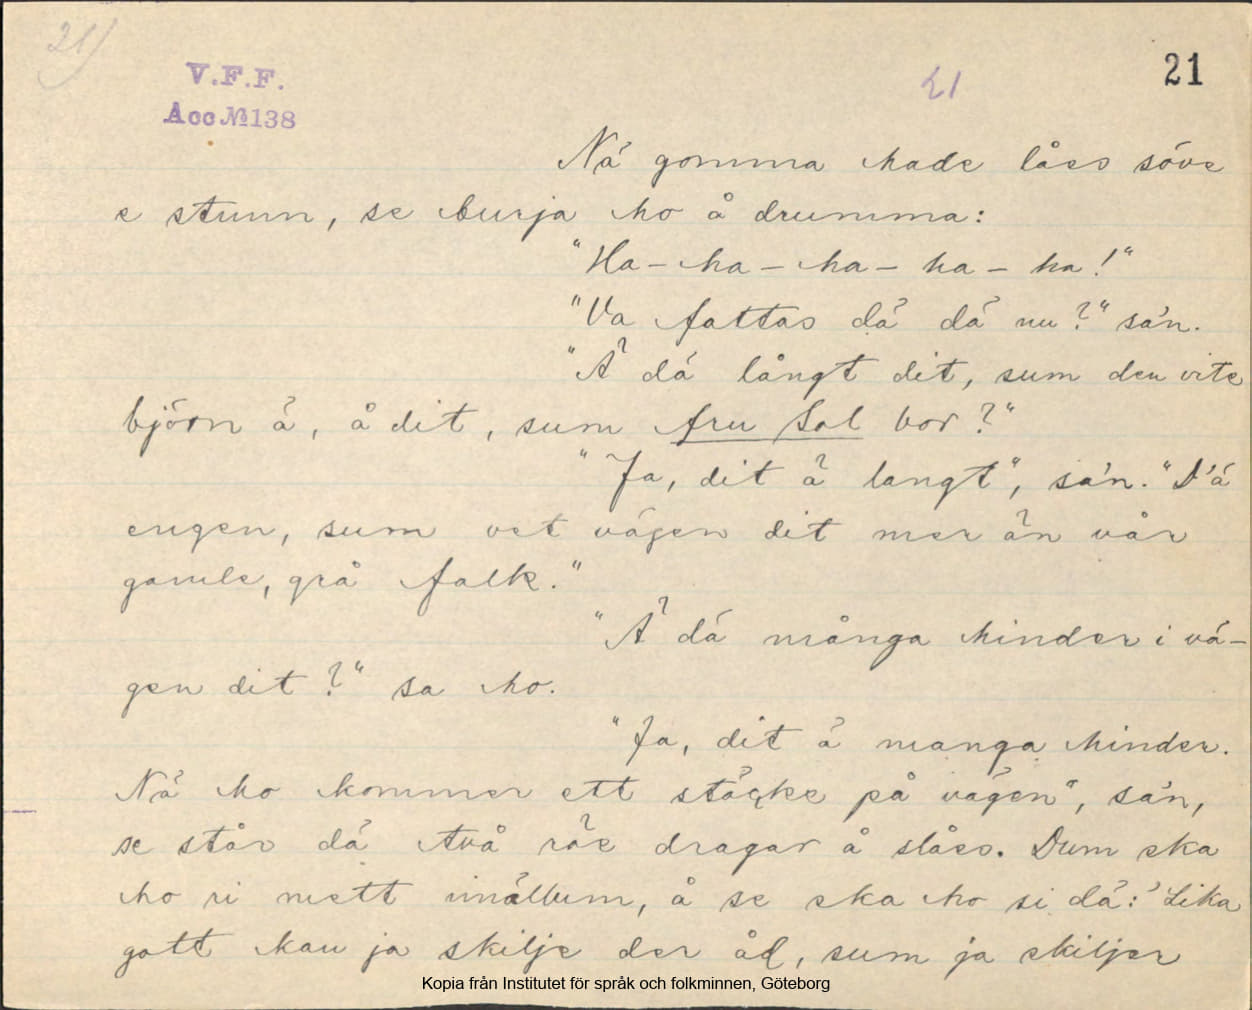 21)
V.F.F.
Acc № 138
21
21
Nä gomma hade låss söve
e stunn, se burja ho å drumma:
"Ha – ha – ha – ha – ha!"
"Va fattas dä dä nu?" sa'n.
"Ä dä långt dit, sum den vite
björn ä, å dit, sum fru Sol bor?"
"Ja, dit ä langt", sa'n. "D'ä
engen, sum vet vägen dit mer än vår
gamle, grå falk."
"Ä dä många hinder i vä-
gen dit?" sa ho.
"Ja, dit ä manga hinder.
Nä ho kommer ett stäcke på vägen", sa'n,
se står dä två röe dragar å slåss. Dum ska
ho ri mett imällum, å se ska ho si dä: 'Lika
gott kan ja skilje der åd, sum ja skiljer
Kopia från Institutet för språk och folkminnen, Göteborg